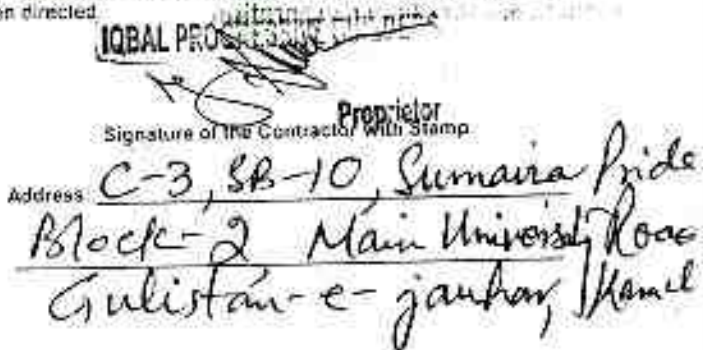 en directed.
IQBAL
Proprietor
Signature of the Contractor with Stamp
Address C-3, SB-10, Sumaira Pride
Block-2 Main University Road
Gulistan-e-jauhar,